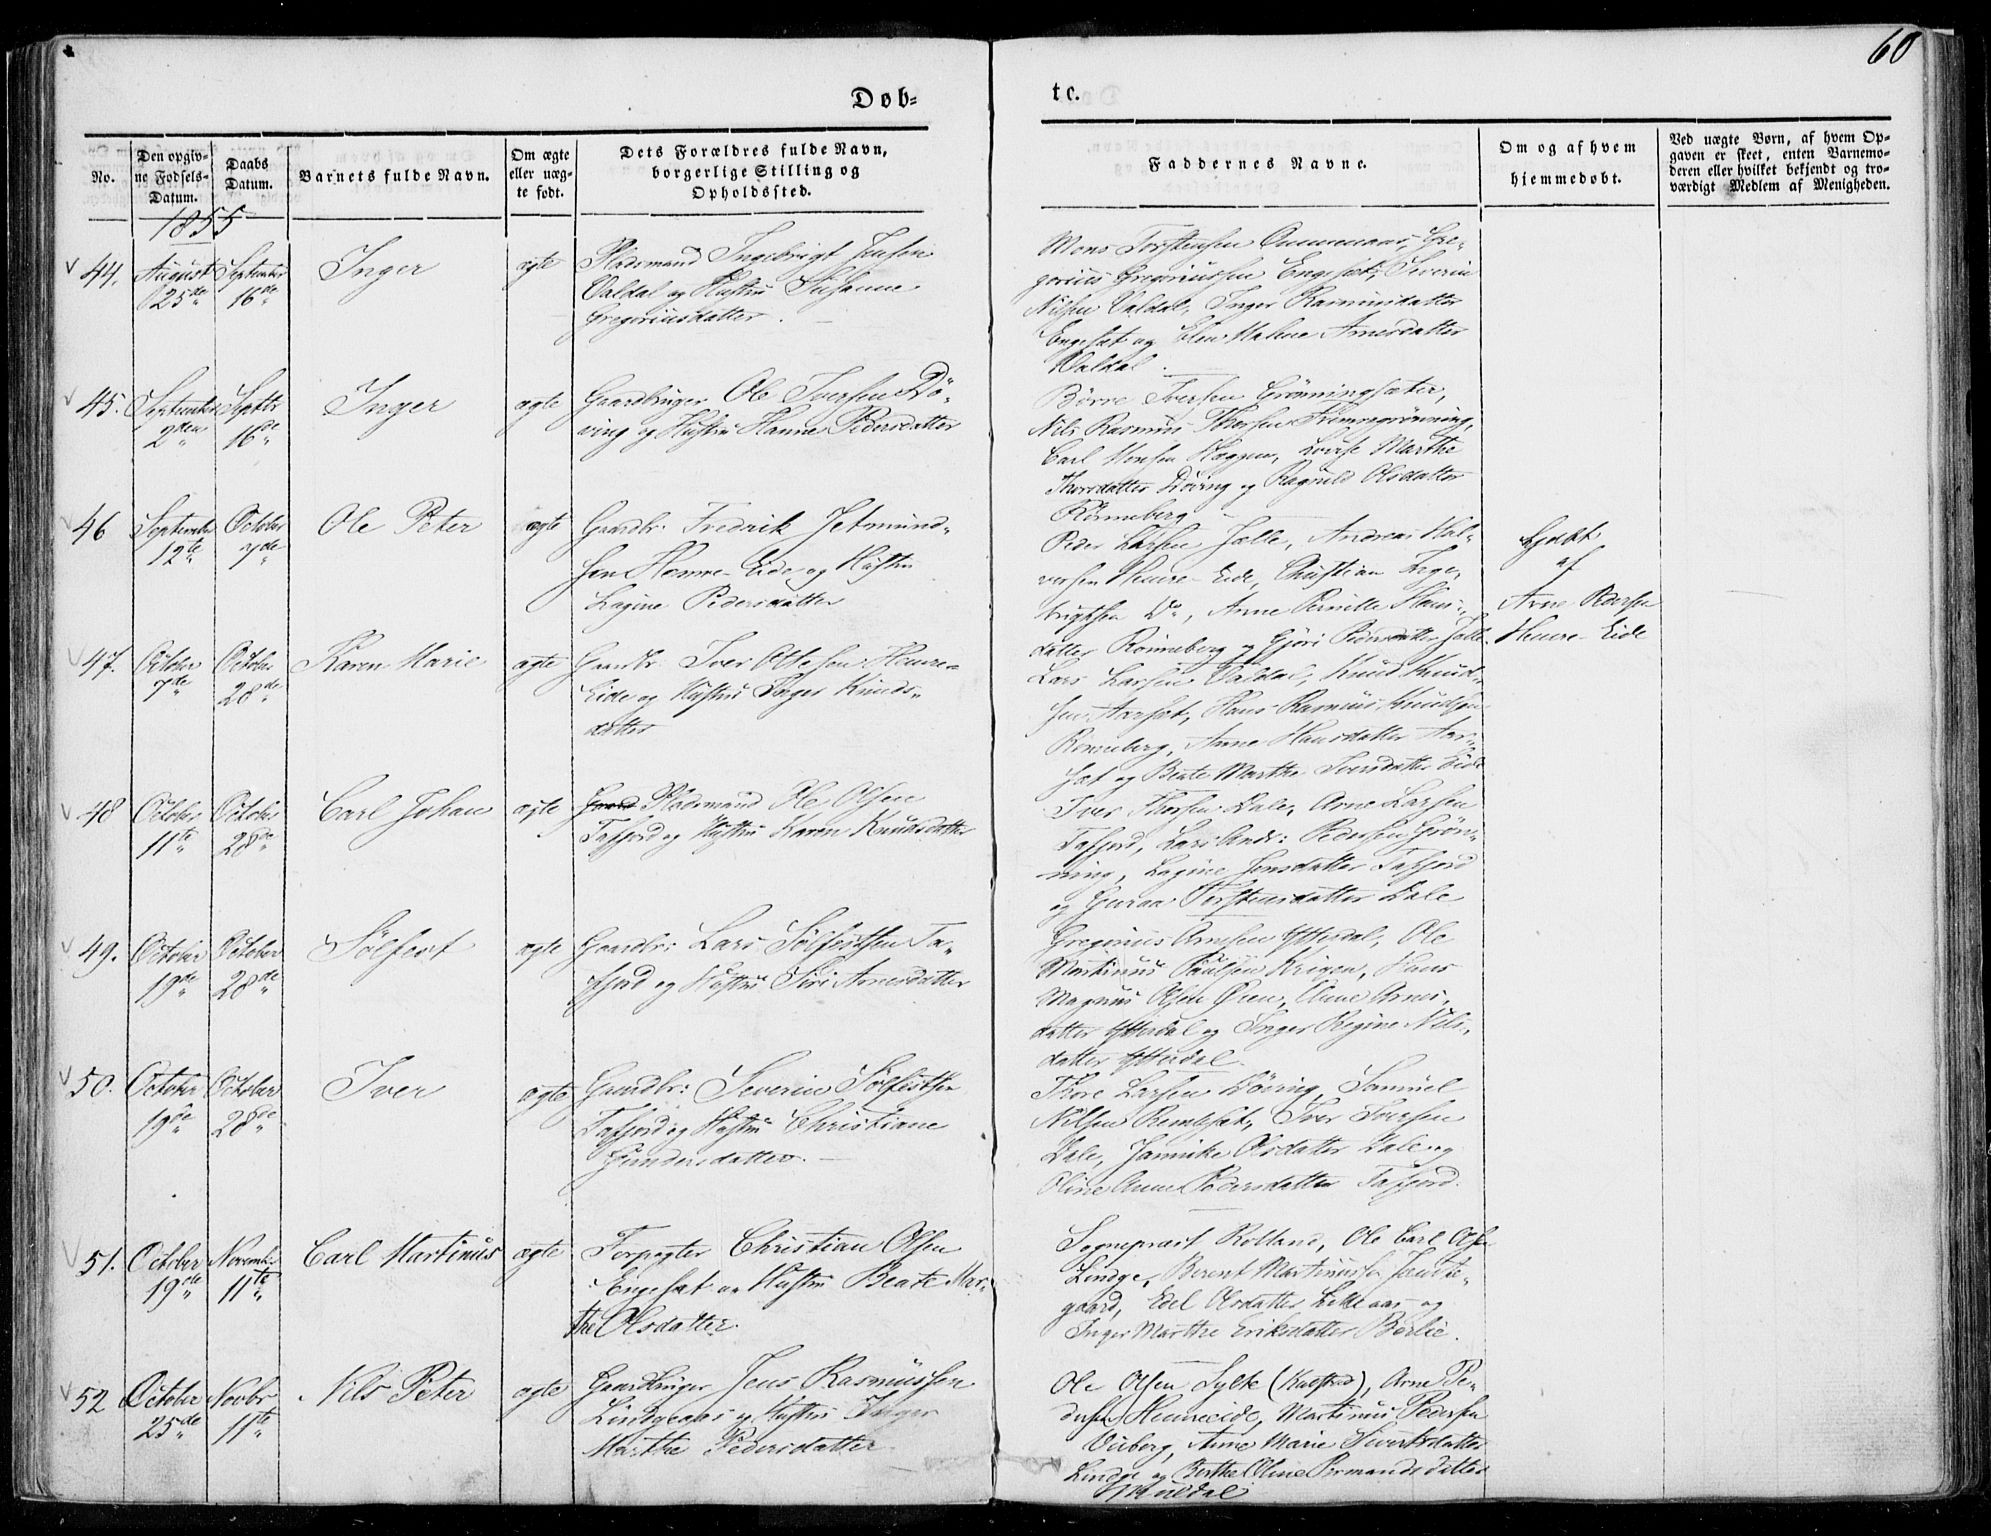 60
Døb-
te.
No.
Den opgiv-
ne Fødsels-
Datum.
Daabs
Datum.
Barnets fulde Navn.
Om ægte
eller uæg-
te født.
Dets Forældres fulde Navn,
borgerlige Stilling og
Opholdssted.
Faddernes Navne.
Om og af hvem
hjemmedøbt.
Ved uægte Børn, af hvem Op-
gaven er skeet, enten Barnemo-
deren eller hvilket bekjendt og tro-
værdigt Medlem af Menigheden.
1855
44. August 25de September 16de Inger ægte
Pladsmand Ingebrigt Jensen
Valdal og Hustru Susanne
Gregoriusdatter.
Mons Torstensen Gre-
gorius Gregoriussen Engesæt, Severin
Nilsen Valdal, Inger Rasmusdatter
Engesæt og Elen Malene Arnesdatter
Valdal.
45. September 2den Septbr 16de Inger ægte
Gaardbruger Ole Iversen Dø-
ving og Hustru Hanne Pedersdatter
Børre Iversen Grønningsæter,
Nils Rasmus Thorsen
Carl Monsen Lovise Marthe
Thorsdatter Døving og Ragnild Olsdatter
Rønneberg
46 September 12te October 7de Ole Peter ægte
Gaardbr. Fredrik Jetmund-
sen Heure-Eide og Hustru
Lagine Pedersdatter
Peder Larsen Jælle, Andreas Hal-
vorsen Heure-Eide, Christian Inge-
brigtsen Do, Anne Pernille Hans-
datter Rønneberg og Gjøri Pedersdatter Jælle.
Hjdøbt
af
Arne Pedersen
Heure-Eide
47. October 7de October 28de Karen Marie ægte
Gaardbr. Iver Ottesen Heure-
Eide og Hustru Inger Knuds-
datter
Lars Larsen Valdal, Knud Knud-
sen Aarset, Hans Rasmus Knudsen
Rønneberg, Anne Hansdatter Aar-
set og Beate Marthe Iversdatter Eide
48 October 11te October 28de Carl Johan ægte
Gaard Pladsmand Ole Olsen
Tafjord og Hustru Karen Knudsdatter
Iver Thorsen Dale, Arne Larsen
Tafjord, Lars Andr: Pedersen Grøn-
ning, Lagine Jensdatter Tafjord
og Guraa Torstensdatter Dale
49. October 19de October 28de Sølfest ægte
Gaardbr: Lars Sølfestsen Ta-
fjord og Hustru Siri Arnesdatter
Gregorius Arnesen Ytterdal, Ole
Martinus Paulsen Krigen, Hans
Magnus Olsen Øren, Anne Arnes-
datter Ytterdal og Inger Regine Nils-
datter Ytterdal.
50. October 19de October 28de Iver ægte
Gaardbr: Severin Sølfestsen
Tafjord og Hustru Christiane
Gundersdatter.
Thore Larsen Døving, Samuel
Nilsen Remsæt, Iver Iversen
Dale, Jannike Olsdatter Dale og
Oline Anne Pedersdatter Tafjord.
51. October 19de Novembr 11te Carl Martinus ægte
Forpagter Christian Olsen
Engesæt og Hustru Beate Mar-
the Olsdatter.
Sognepræst Rolland, Ole Carl Olsen
Lindge, Berent Martinussen
gaard, Edel Olsdatter Lilleaas og
Inger Marthe Eriksdatter Berlie.
52 October 25de Novbr 11te Nils Peter ægte
Gaardbruger Jens Rasmussen
Lindgeaas og Hustru Inger
Marthe Pedersdatter
Ole Olsen Sylte Arne Pe-
dersen Heureeide, Martinus Pedersen
Viiberg, Anne Marie Sivertsdatter
Lindge og Berthe Oline Permandsdatter
Muldal